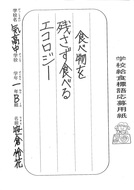 学校給食標語応募用紙
食べ物を
残さず食べる
エコロジー
学校名
中学校
学年
1年B組
氏名